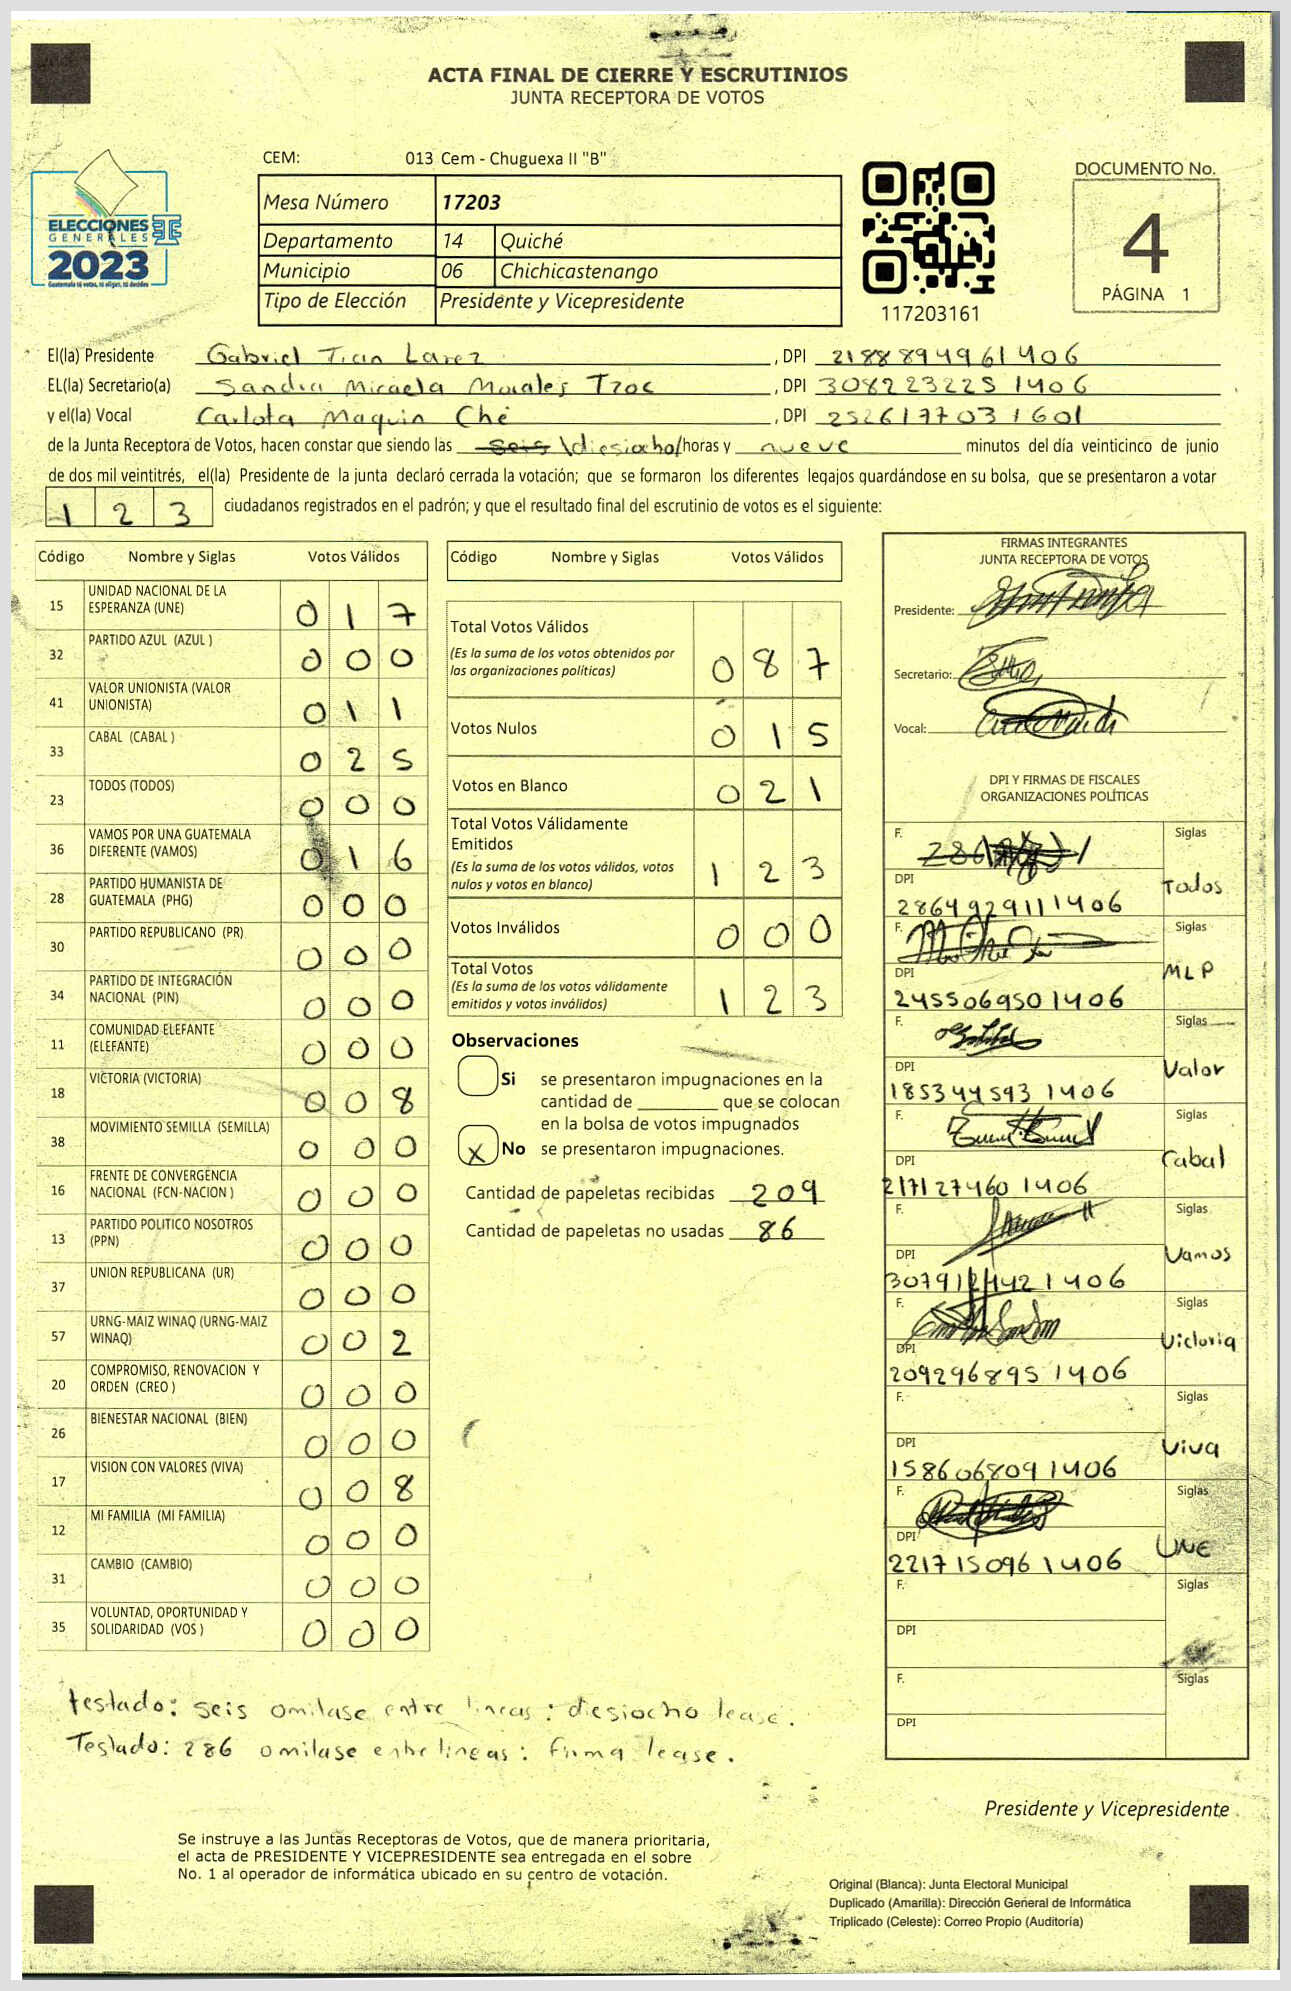 ACTA FINAL DE CIERRE Y ESCRUTINIOS
JUNTA RECEPTORA DE VOTOS
ELECCIONES
GENERALES
2023
Guatemala tú votas, tú eliges, tú decides
CEM: 013 Cem - Chuguexa II "B"
Mesa Número 17203
Departamento 14 Quiché
Municipio 06 Chichicastenango
Tipo de Elección Presidente y Vicepresidente
117203161
DOCUMENTO No.
4
PÁGINA 1
El(la) Presidente Gabriel Tian Larez, DPI 2188894961406
EL(la) Secretario(a) Sandra Micaela Morales Tzoc, DPI 3082232251406
y el(la) Vocal Carlota Maquin Ché, DPI 2526177031601
de la Junta Receptora de Votos, hacen constar que siendo las seis \diesiocho/ horas y nueve minutos del día veinticinco de junio
de dos mil veintitrés, el(la) Presidente de la junta declaró cerrada la votación; que se formaron los diferentes legajos guardándose en su bolsa, que se presentaron a votar
1 2 3 ciudadanos registrados en el padrón; y que el resultado final del escrutinio de votos es el siguiente:
Código Nombre y Siglas Votos Válidos
15 UNIDAD NACIONAL DE LA ESPERANZA (UNE) 0 1 7
32 PARTIDO AZUL (AZUL ) 0 0 0
41 VALOR UNIONISTA (VALOR UNIONISTA) 0 1 1
33 CABAL (CABAL ) 0 2 5
23 TODOS (TODOS) 0 0 0
36 VAMOS POR UNA GUATEMALA DIFERENTE (VAMOS) 0 1 6
28 PARTIDO HUMANISTA DE GUATEMALA (PHG) 0 0 0
30 PARTIDO REPUBLICANO (PR) 0 0 0
34 PARTIDO DE INTEGRACIÓN NACIONAL (PIN) 0 0 0
11 COMUNIDAD ELEFANTE (ELEFANTE) 0 0 0
18 VICTORIA (VICTORIA) 0 0 8
38 MOVIMIENTO SEMILLA (SEMILLA) 0 0 0
16 FRENTE DE CONVERGENCIA NACIONAL (FCN-NACION ) 0 0 0
13 PARTIDO POLITICO NOSOTROS (PPN) 0 0 0
37 UNION REPUBLICANA (UR) 0 0 0
57 URNG-MAIZ WINAQ (URNG-MAIZ WINAQ) 0 0 2
20 COMPROMISO, RENOVACION Y ORDEN (CREO ) 0 0 0
26 BIENESTAR NACIONAL (BIEN) 0 0 0
17 VISION CON VALORES (VIVA) 0 0 8
12 MI FAMILIA (MI FAMILIA) 0 0 0
31 CAMBIO (CAMBIO) 0 0 0
35 VOLUNTAD, OPORTUNIDAD Y SOLIDARIDAD (VOS ) 0 0 0
Código Nombre y Siglas Votos Válidos
Total Votos Válidos
(Es la suma de los votos obtenidos por las organizaciones políticas) 0 8 7
Votos Nulos 0 1 5
Votos en Blanco 0 2 1
Total Votos Válidamente Emitidos
(Es la suma de los votos válidos, votos nulos y votos en blanco) 1 2 3
Votos Inválidos 0 0 0
Total Votos
(Es la suma de los votos válidamente emitidos y votos inválidos) 1 2 3
Observaciones
Si se presentaron impugnaciones en la
cantidad de ________ que se colocan
en la bolsa de votos impugnados
X No se presentaron impugnaciones.
Cantidad de papeletas recibidas 209
Cantidad de papeletas no usadas 86
FIRMAS INTEGRANTES
JUNTA RECEPTORA DE VOTOS
Presidente:
Secretario:
Vocal:
DPI Y FIRMAS DE FISCALES
ORGANIZACIONES POLÍTICAS
F. Siglas
DPI Todos
2864929111406
F. Siglas
DPI MLP
2455069501406
F. Siglas
DPI Valor
1853445931406
F. Siglas
DPI Cabal
2171274601406
F. Siglas
DPI Vamos
F. Siglas
DPI Victoria
2092968951406
F. Siglas
DPI Viva
1586068091406
F. Siglas
DPI UNE
2217150961406
F. Siglas
DPI
F. Siglas
DPI
testado: seis omitase entre lineas: diesiocho lease.
Testado: 286 omitase entre lineas: firma lease.
Presidente y Vicepresidente
Se instruye a las Juntas Receptoras de Votos, que de manera prioritaria,
el acta de PRESIDENTE Y VICEPRESIDENTE sea entregada en el sobre
No. 1 al operador de informática ubicado en su centro de votación.
Original (Blanca): Junta Electoral Municipal
Duplicado (Amarilla): Dirección General de Informática
Triplicado (Celeste): Correo Propio (Auditoría)